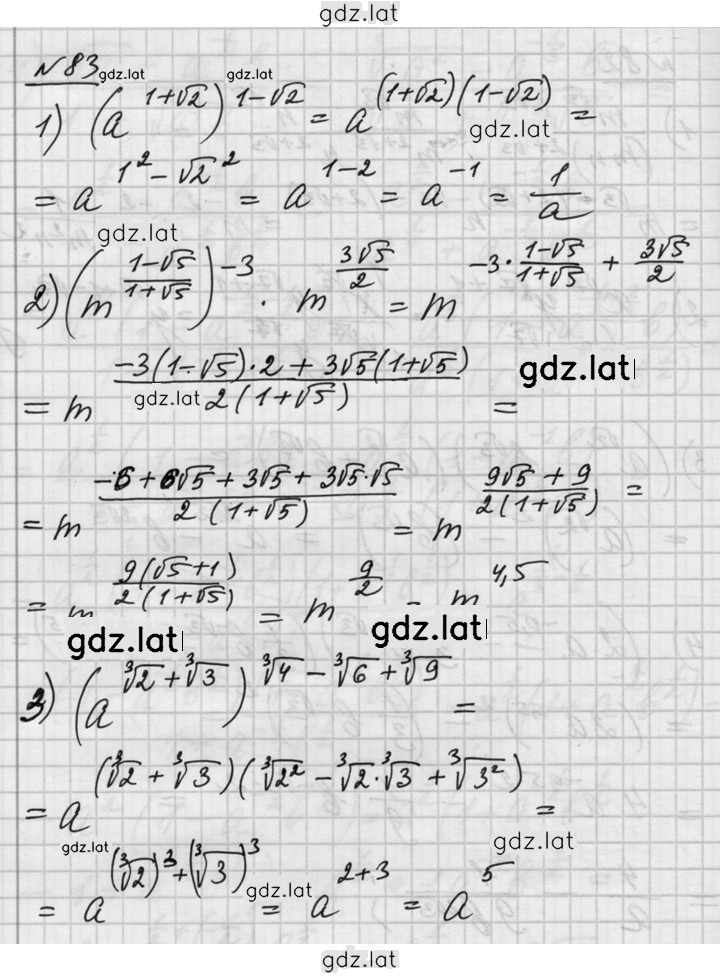 gdz.lat
№83 gdz.lat gdz.lat
1) (a^(1+√2))^(1-√2) = a^((1+√2)(1-√2)) =
gdz.lat
= a^(1²-√2²) = a^(1-2) = a^(-1) = 1/a
gdz.lat
2) (m^((1-√5)/(1+√5)))^(-3) · m^(3√5/2) = m^(-3·(1-√5)/(1+√5) + 3√5/2)
= m^((-3(1-√5)·2+3√5(1+√5))/(2(1+√5))) =
gdz.lat gdz.lat
= m^((-6+6√5+3√5+3√5·√5)/(2(1+√5))) = m^((9√5+9)/(2(1+√5))) =
= m^(9(√5+1)/(2(1+√5))) = m^(9/2) = m^(4,5)
gdz.lat gdz.lat
3) (a^(∛2+∛3))^(∛4-∛6+∛9) =
= a^((∛2+∛3)(∛2²-∛2·∛3+∛3²)) =
gdz.lat gdz.lat
= a^((∛2)³+(∛3)³) = a^(2+3) = a^5
gdz.lat
gdz.lat